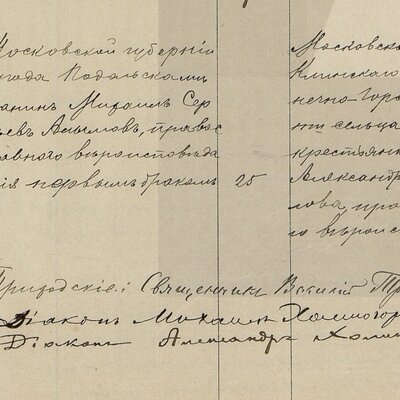 Московской губернiи
города Подольска мѣ
щанинъ Михаилъ Сер
гѣевъ православ
славнаго вѣроисповѣда
нiя первымъ бракомъ
25
Московско
Клинскаго
нечно-Гор
ни сельца
крестьянк
Александр
лова, пра
го вѣроис
Приходскiе: Священникъ Василiй
Дiаконъ Михаилъ Холмогор
Дiаконъ Александръ Холм